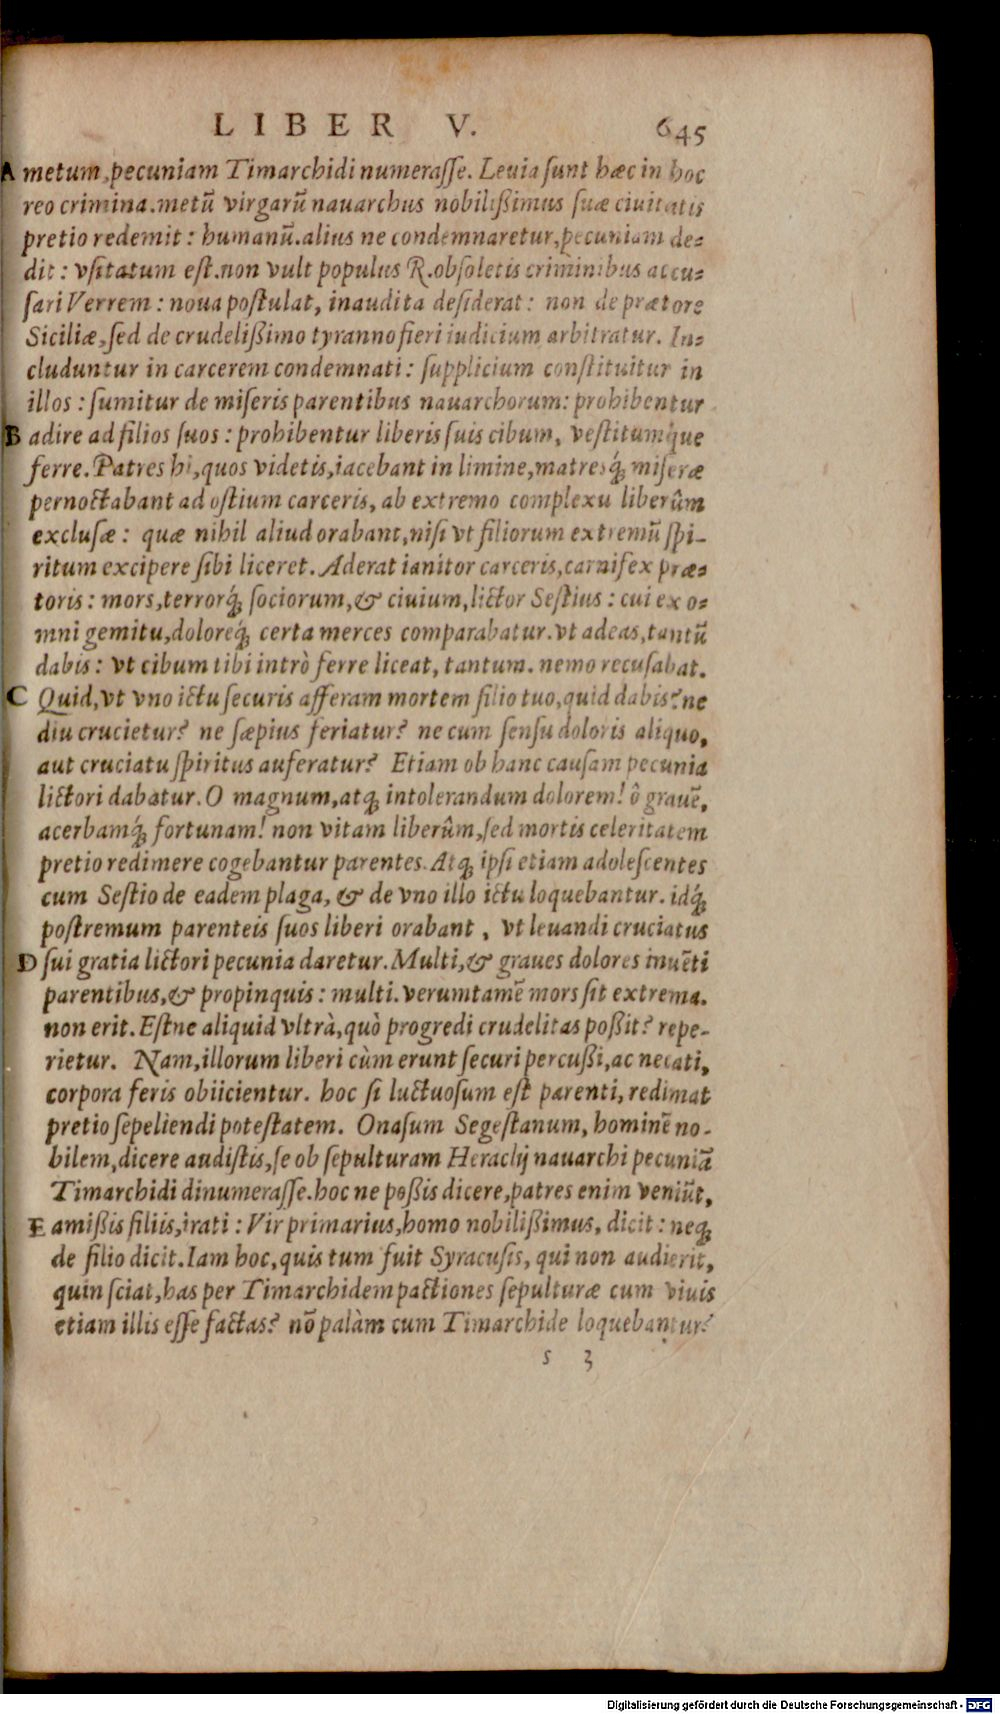 LIBER V. 645
A metum, pecuniam Timarchidi numerasse. Leuia sunt hæc in hoc
reo crimina. metū virgarū nauarchus nobilißimus suæ ciuitatis
pretio redemit: humanū. alius ne condemnaretur, pecuniam de-
dit: vsitatum est. non vult populus R. obsoletis criminibus accu-
sari Verrem: noua postulat, inaudita desiderat: non de prætore
Siciliæ, sed de crudelißimo tyranno fieri iudicium arbitratur. In-
cluduntur in carcerem condemnati: supplicium constituitur in
illos: sumitur de miseris parentibus nauarchorum: prohibentur
B adire ad filios suos: prohibentur liberis suis cibum, vestitumque
ferre. Patres hi, quos videtis, iacebant in limine, matresq́; miseræ
pernoctabant ad ostium carceris, ab extremo complexu liberûm
exclusæ: quæ nihil aliud orabant, nisi vt filiorum extremū spi-
ritum excipere sibi liceret. Aderat ianitor carceris, carnifex præ-
toris: mors, terrorq́; sociorum, & ciuium, lictor Sestius: cui ex o-
mni gemitu, doloreq́; certa merces comparabatur. vt adeas, tantū
dabis: vt cibum tibi intrò ferre liceat, tantum. nemo recusabat.
C Quid, vt vno ictu securis afferam mortem filio tuo, quid dabis? ne
diu crucietur? ne sæpius feriatur? ne cum sensu doloris aliquo,
aut cruciatu spiritus auferatur? Etiam ob hanc causam pecunia
lictori dabatur. O magnum, atq; intolerandum dolorem! ô grauē,
acerbamq́; fortunam! non vitam liberûm, sed mortis celeritatem
pretio redimere cogebantur parentes. Atq; ipsi etiam adolescentes
cum Sestio de eadem plaga, & de vno illo ictu loquebantur. idq́;
postremum parenteis suos liberi orabant, vt leuandi cruciatus
D sui gratia lictori pecunia daretur. Multi, & graues dolores inuēti
parentibus, & propinquis: multi. verumtamē mors sit extrema.
non erit. Estne aliquid vltrà, quò progredi crudelitas poßit? repe-
rietur. Nam, illorum liberi cùm erunt securi percußi, ac necati,
corpora feris obiicientur. hoc si luctuosum est parenti, redimat
pretio sepeliendi potestatem. Onasum Segestanum, hominē no-
bilem, dicere audistis, se ob sepulturam Heraclij nauarchi pecuniā
Timarchidi dinumerasse. hoc ne poßis dicere, patres enim veniūt,
E amißis filiis, irati: Vir primarius, homo nobilißimus, dicit: neq;
de filio dicit. Iam hoc, quis tum fuit Syracusis, qui non audierit,
quin sciat, has per Timarchidem pactiones sepulturæ cum viuis
etiam illis esse factas? nō palàm cum Timarchide loquebantur?
s 3
Digitalisierung gefördert durch die Deutsche Forschungsgemeinschaft - DFG